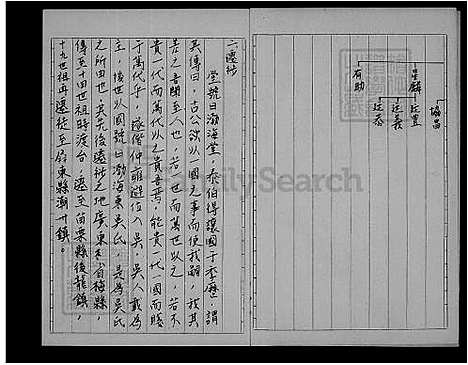 有助
星麟
廷恭
廷義
廷豊
協昌
二、遷徙
堂號曰渤海堂，泰伯得讓國于季歷，謂
其傳曰，古公欲以一國之事而使我嗣，我其
苦之，吾聞至人也，若一世而萬世以之，若不
貴一代而萬代以之貴吾焉，能貴一代一國而賤
于萬代乎，遂偕仲雍避位入吳，吳人戴為
主，後世以國號曰渤海東吳氏，是為吳氏
之所由也，其先後遠徙之地廣東省梅縣，
傳至十四世祖時渡台，遷至苗栗縣後龍鎮，
十九世祖再遷徙至屏東縣潮州鎮。
FamilySearch